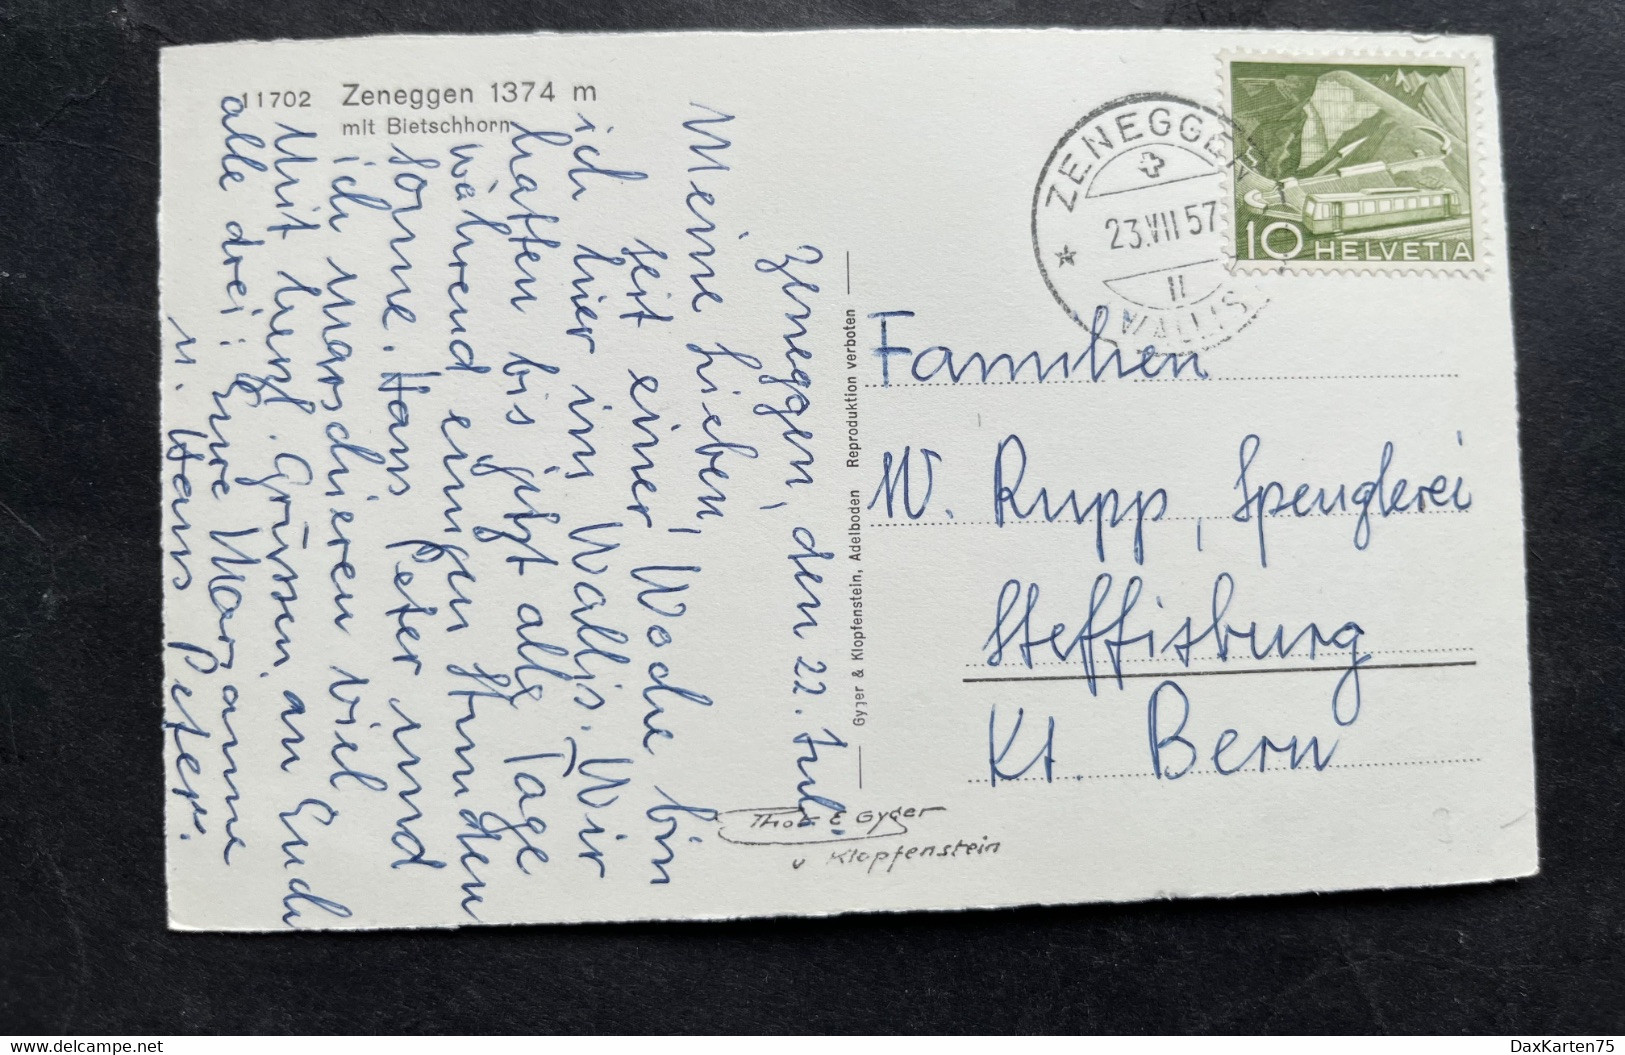 11702 Zeneggen 1374 m
mit Bietschhorn
Zeneggen, den 22. Juli
Meine Lieben,
seit einer Woche bin
ich hier im Wallis. Wir
hatten bis jetzt alle Tage
während einigen Stunden
Sonne. Hans Peter und
ich marschieren viel
Mit herzl. Grüssen an Euch
alle drei: Eure Marianne
u. Hans Peter.
Gyger & Klopfenstein, Adelboden Reproduktion verboten
Phot E Gyger
u Klopfenstein
ZENEGGEN
23.VII 57
II
(WALLIS)
10 HELVETIA
Familien
W. Rupp, Spenglerei
Steffisburg
Kt. Bern
DaxKarten75